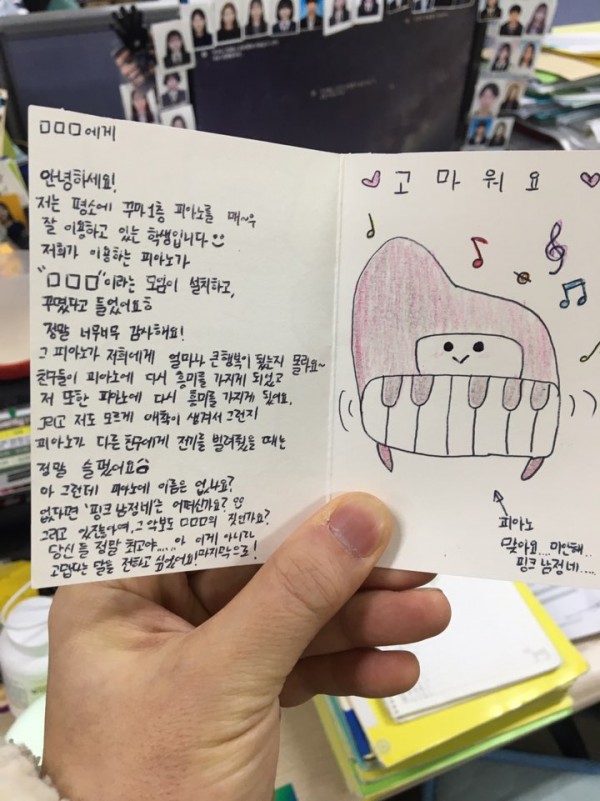 □□□에게
안녕하세요!
저는 평소에 꾸마1층 피아노를 매~우
잘 이용하고 있는 학생입니다
저희가 이용하는 피아노가
"□□□"이라는 모임이 설치하고,
꾸몄다고 들었어요ㅎ
정말 너무너무 감사해요!
그 피아노가 저희에게 얼마나 큰 행복이 됬는지 몰라요~
친구들이 피아노에 다시 흥미를 가지게 되었고
저 또한 피아노에 다시 흥미를 가지게 됬어요.
그리고 저도 모르게 애착이 생겨서 그런지
피아노가 다른 친구에게 전기를 빌려줬을 때는
정말 슬펐어요
아 그런데 피아노에 이름은 없나요?
없다면 '핑크 남정네'는 어떠신가요?
그리고 있잖아여, 그 악보도 □□□의 짓인가요?
당신들 정말 최고야.....아 이게 아니라
고맙다는 말을 전하고 싶었어요! 마지막으로!
고 마 워 요
피아노
맞아요...미안해..
핑크 남정네....